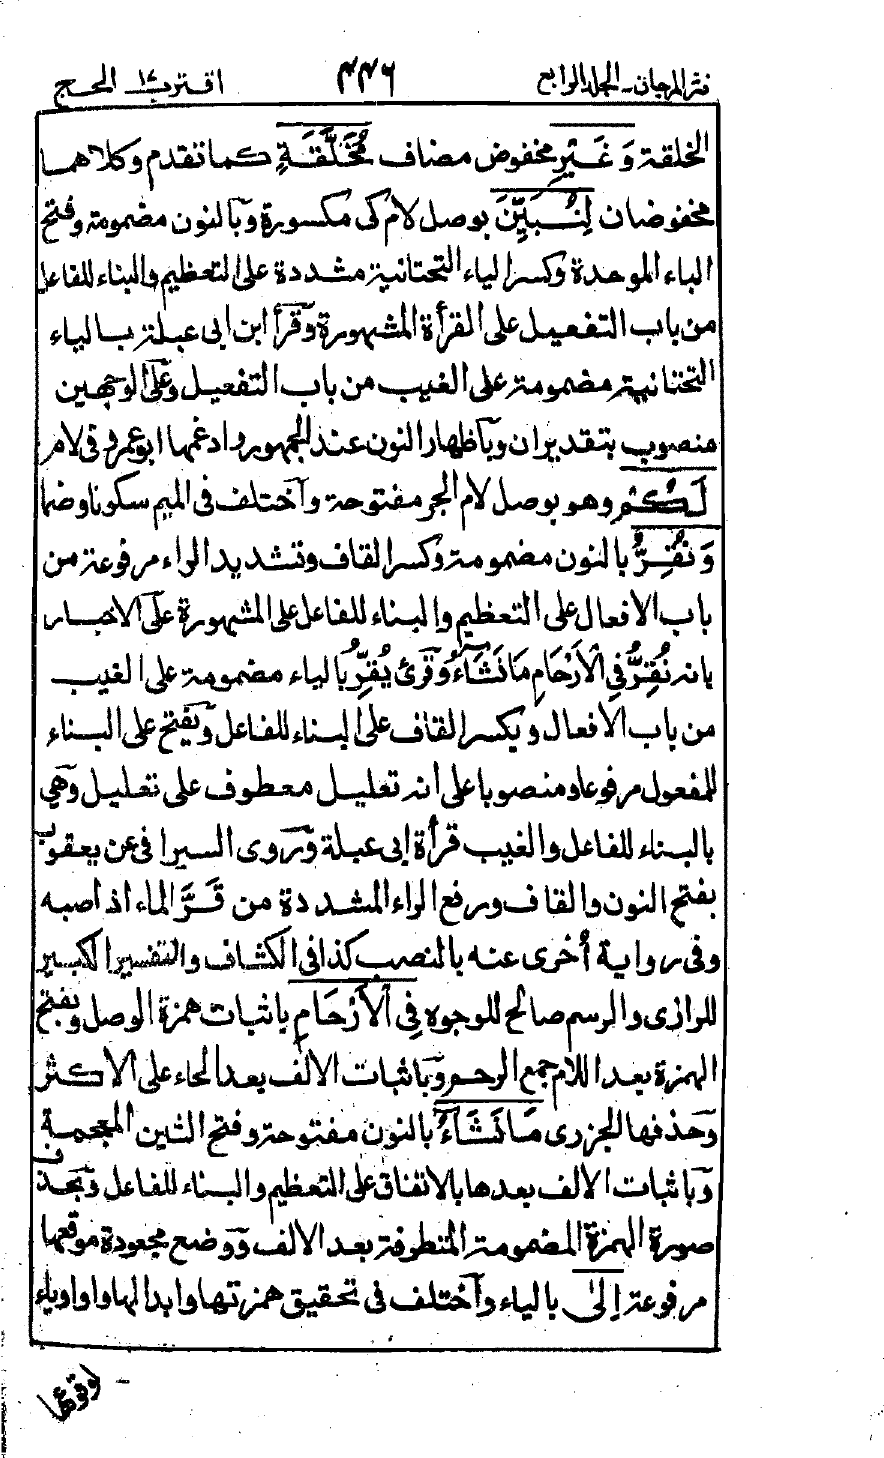 نثر المرجان ـ الجلد الرابع ٤٤٦ اقترب ١٧ الحج
الخلقة وَغَيْرِ مخفوض مضاف مُخَلَّقَةٍ كما تقدم وكلاهما
مخفوضان لِنُبَيِّنَ بوصل لام كى مكسورة وبالنون مضمومة وفتح
الباء الموحدة وكسر الياء التحتانية مشددة على التعظيم والبناء للفاعل
من باب التفعيل على القرأة المشهورة وقرأ ابن ابى عبلة بالياء
التحتانية مضمومة على الغيب من باب التفعيل وعلى الوجهين
منصوب بتقدير ان وباظهار النون عند الجمهور وادغمها ابو عمرو فى لام
لَكُمْ وهو بوصل لام الجر مفتوحة واختلف فى الميم سكونا وضما
وَنُقِرُّ بالنون مضمومة وكسر القاف وتشديد الراء مرفوعة من
باب الافعال على التعظيم والبناء للفاعل على المشهورة على الاخبار
بانه نُقِرُّ فِي الْأَرْحَامِ مَا نَشَاءُ وقرئ يُقِرُّ بالياء مضمومة على الغيب
من باب الافعال وبكسر القاف على البناء للفاعل وبفتح على البناء
للمفعول مرفوعا ومنصوبا على انه تعليل معطوف على تعليل وهى
بالبناء للفاعل والغيب قرأة ابى عبلة وروى السيرافى عن يعقوب
بفتح النون والقاف ورفع الراء المشددة من قَرَّ الماء اذا صبه
وفى رواية أخرى عنه بالنصب كذا فى الكشاف والتفسير الكبير
للرازى والرسم صالح للوجوه فِي الْأَرْحَامِ باثبات همزة الوصل وبفتح
الهمزة بعد اللام جمع الرحم وباثبات الالف بعد الحاء على الاكثر
وحذفها الجزرى مَا نَشَاءُ بالنون مفتوحة وفتح الشين المعجمة
وباثبات الالف بعدها بالاتفاق على التعظيم والبناء للفاعل وبحذف
صورة الهمزة المضمومة المتطرفة بعد الالف ووضع مجعودة موقعها
مرفوعة إِلَىٰ بالياء واختلف فى تحقيق همزتها وابدالها واوا وياء
لوقوعها